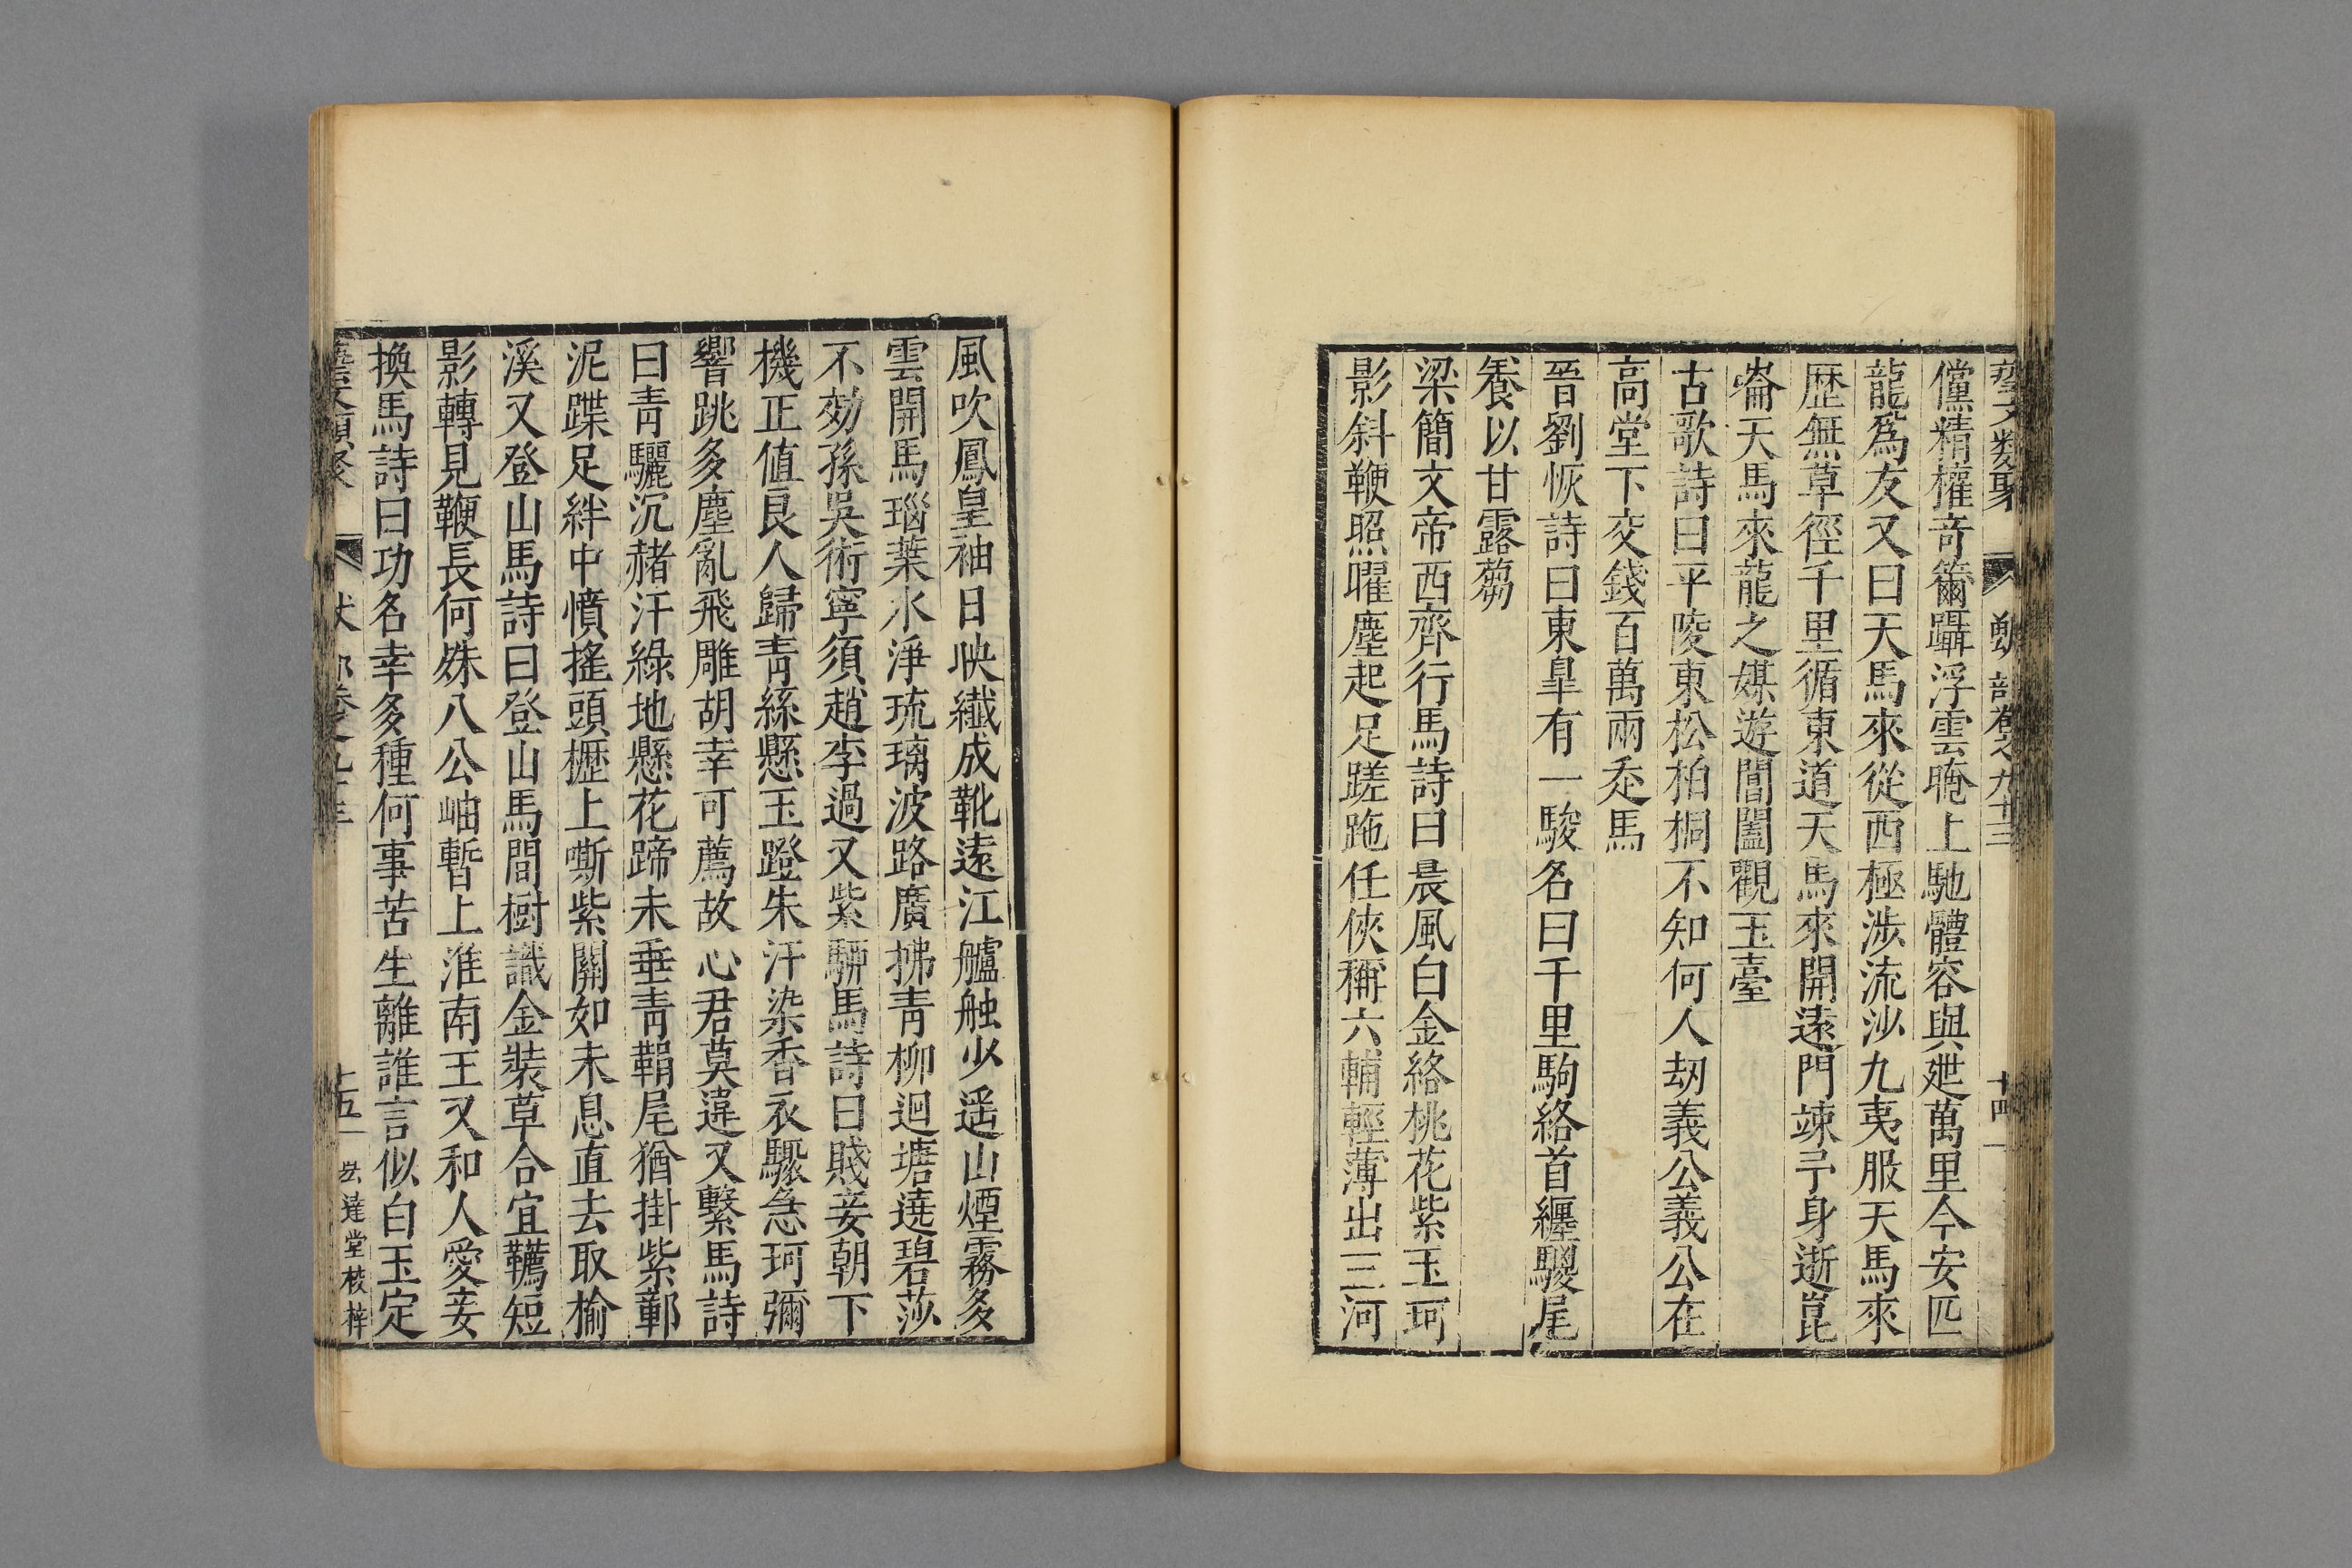 藝文類聚 獸部卷之九十三 十四
儻精權奇籋躡浮雲晻上馳體容與迣萬里今安匹
龍爲友又曰天馬來從西極涉流沙九夷服天馬來
歷無草徑千里循東道天馬來開遠門竦予身逝崑
崙天馬來龍之媒遊閶闔觀玉臺
古歌詩曰平陵東松柏桐不知何人劫義公義公在
高堂下交錢百萬兩走馬
晉劉恢詩曰東皐有一駿名曰千里駒絡首纏騣尾
養以甘露蒭
梁簡文帝西齊行馬詩曰晨風白金絡桃花紫玉珂
影斜鞭照曜塵起足蹉跎任俠稱六輔輕薄出三河
風吹鳳皇袖日映織成靴遠江艫舳少遥山煙霧多
雲開馬瑙葉水淨琉璃波路廣拂青柳迴塘遶碧莎
不効孫吳術寧須趙李過又紫騮馬詩曰賤妾朝下
機正值良人歸青絲懸玉蹬朱汗染香衣驟急珂彌
響跳多塵亂飛雕胡幸可薦故心君莫違又繫馬詩
曰青驪沉赭汗綠地懸花蹄未垂青鞙尾猶掛紫鄿
泥蹀足絆中憤搖頭櫪上嘶紫關如未息直去取榆
溪又登山馬詩曰登山馬間樹識金裝草合宜韉短
影轉見鞭長何殊八公岫暫上淮南王又和人愛妾
換馬詩曰功名幸多種何事苦生離誰言似白玉定
藝文類聚 獸部卷之九十三 十五 世達堂校梓